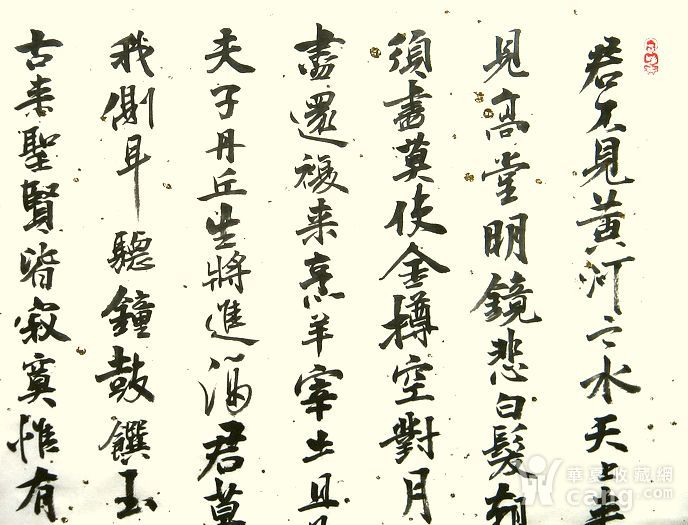 君不見黃河之水天上来
見高堂明鏡悲白髮朝
須盡莫使金樽空對月
盡還複来烹羊宰牛且
夫子丹丘生將進酒君莫
我側耳聽鐘鼓饌玉
古来聖賢皆寂寞惟有
華夏收藏網
cang.com